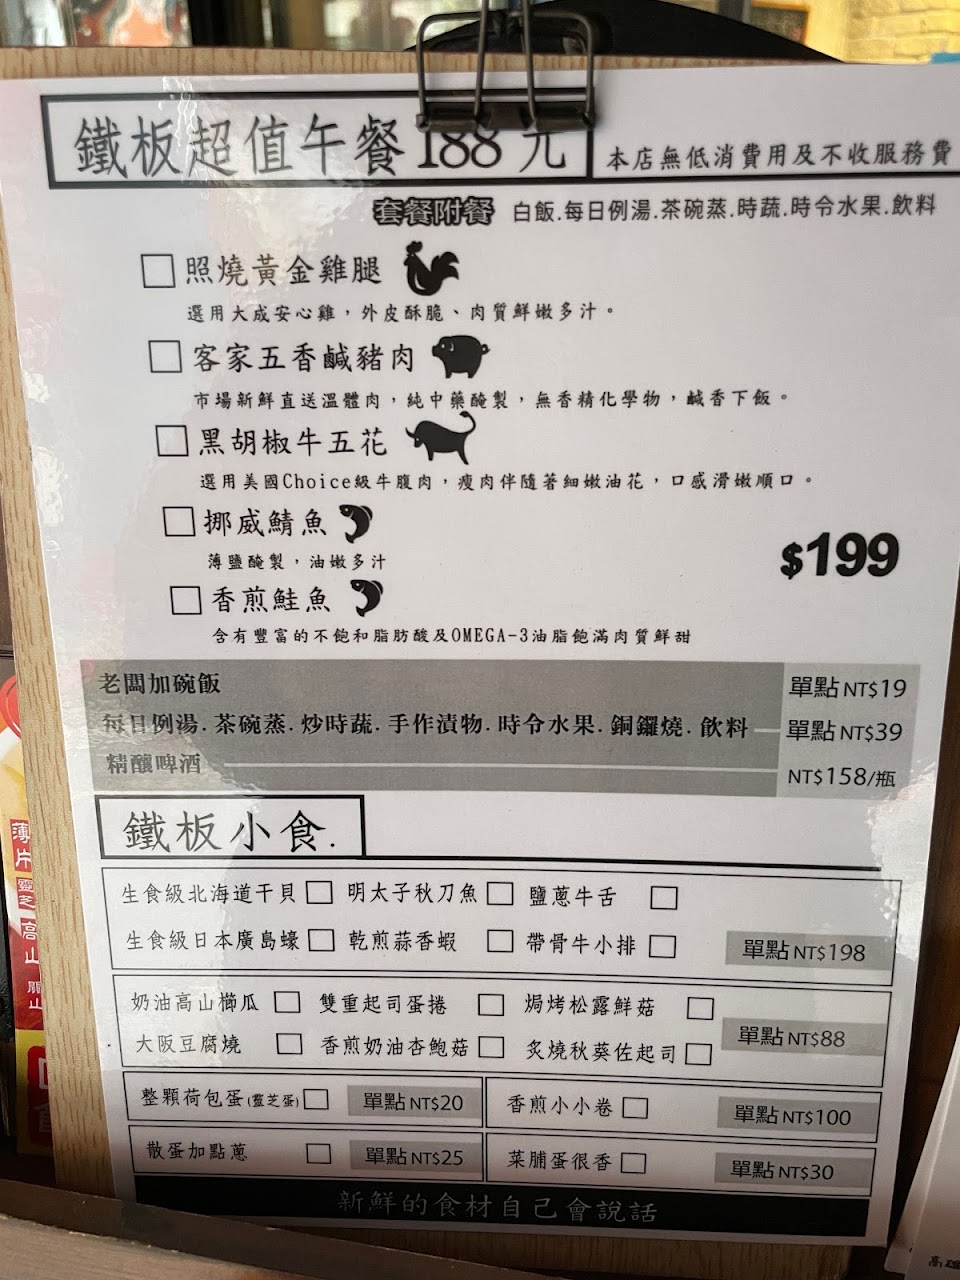 鐵板超值午餐188元
本店無低消費用及不收服務費
套餐附餐 白飯.每日例湯.茶碗蒸.時蔬.時令水果.飲料
照燒黃金雞腿
選用大成安心雞，外皮酥脆、肉質鮮嫩多汁。
客家五香鹹豬肉
市場新鮮直送溫體肉，純中藥醃製，無香精化學物，鹹香下飯。
黑胡椒牛五花
選用美國Choice級牛腹肉，瘦肉伴隨著細嫩油花，口感滑嫩順口。
挪威鯖魚
薄鹽醃製，油嫩多汁
$199
香煎鮭魚
含有豐富的不飽和脂肪酸及OMEGA-3油脂飽滿肉質鮮甜
老闆加碗飯 單點NT$19
每日例湯.茶碗蒸.炒時蔬.手作漬物.時令水果.銅鑼燒.飲料 單點NT$39
精釀啤酒 NT$158/瓶
鐵板小食.
生食級北海道干貝 明太子秋刀魚 鹽蔥牛舌
生食級日本廣島蠔 乾煎蒜香蝦 帶骨牛小排 單點NT$198
奶油高山櫛瓜 雙重起司蛋捲 焗烤松露鮮菇
大阪豆腐燒 香煎奶油杏鮑菇 炙燒秋葵佐起司 單點NT$88
整顆荷包蛋(靈芝蛋) 單點NT$20 香煎小小卷 單點NT$100
散蛋加點蔥 單點NT$25 菜脯蛋很香 單點NT$30
新鮮的食材自己會說話
薄片靈芝
高山
關山